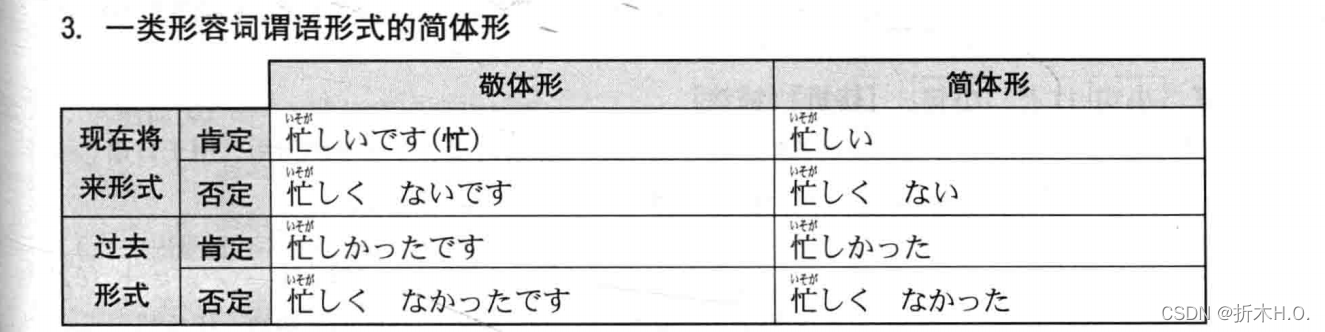 3. 一类形容词谓语形式的简体形
敬体形 简体形
现在将来形式 肯定 忙しいです(忙) 忙しい
否定 忙しく ないです 忙しく ない
过去形式 肯定 忙しかったです 忙しかった
否定 忙しく なかったです 忙しく なかった
いそが いそが
いそが いそが
いそが いそが
いそが いそが
CSDN @折木H.O.